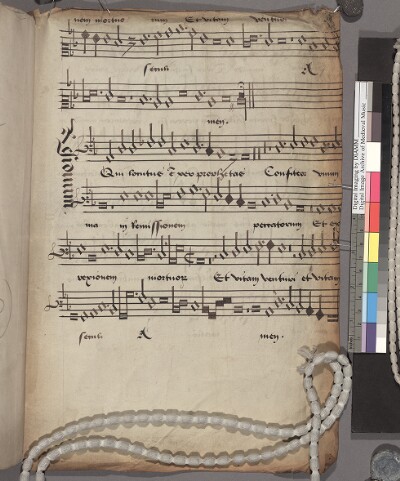 nem mortuo rum Et vitam venturi
seculi A
men.
Qui locutus est per prophetas Confiteor unum
ma in Remissionem peccatorum Et ex
mortuor Et vitam venturi et vitam
seculi A men.
Digital Imaging by DIAMM
Digital Image Archive of Medieval Music